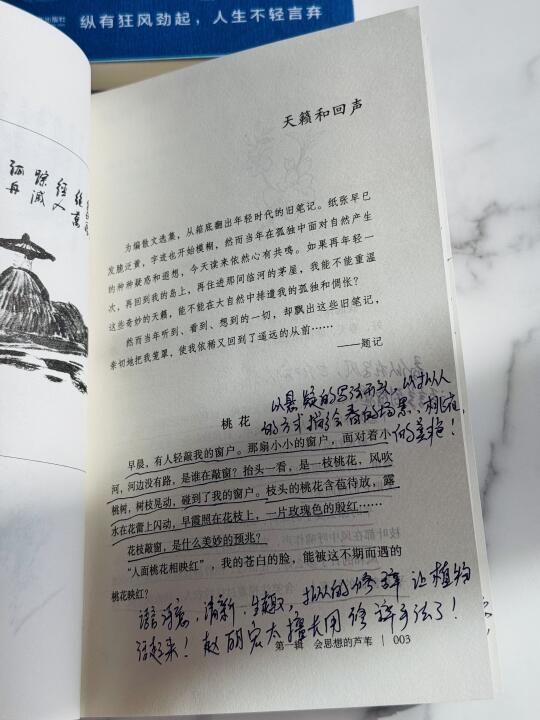 出版社
纵有狂风劲起，人生不轻言弃
天籁和回声
踪灭
径人
孤舟
为编散文选集，从箱底翻出年轻时代的旧笔记。纸张早已
发脆泛黄，字迹也开始模糊，然而当年在孤独中面对自然产生
的种种疑惑和遐想，今天读来依然心有共鸣。如果再年轻一
次，再回到我的岛上，再住进那间临河的茅屋，我能不能重温
这些奇妙的天籁，能不能在大自然中排遣我的孤独和惆怅？
然而当年听到、看到、想到的一切，却飘出这些旧笔记，
亲切地把我笼罩，使我依稀又回到了遥远的从前……
——题记
以悬疑的写法开头，以拟人
的方式描写会春的场景、桃花
的美艳！
桃花
早晨，有人轻敲我的窗户。那扇小小的窗户，面对着小
河，河边没有路，是谁在敲窗？抬头一看，是一枝桃花，风吹
桃树，树枝晃动，碰到了我的窗户。枝头的桃花含苞待放，露
水在花蕾上闪动，早霞照在花枝上，一片玫瑰色的殷红……
花枝敲窗，是什么美妙的预兆？
“人面桃花相映红”，我的苍白的脸，能被这不期而遇的
桃花映红？
语言诗意，清新，生趣，拟人的修辞让植物
活起来！赵丽宏太擅长用修辞手法了！
第一辑 会思想的芦苇 003